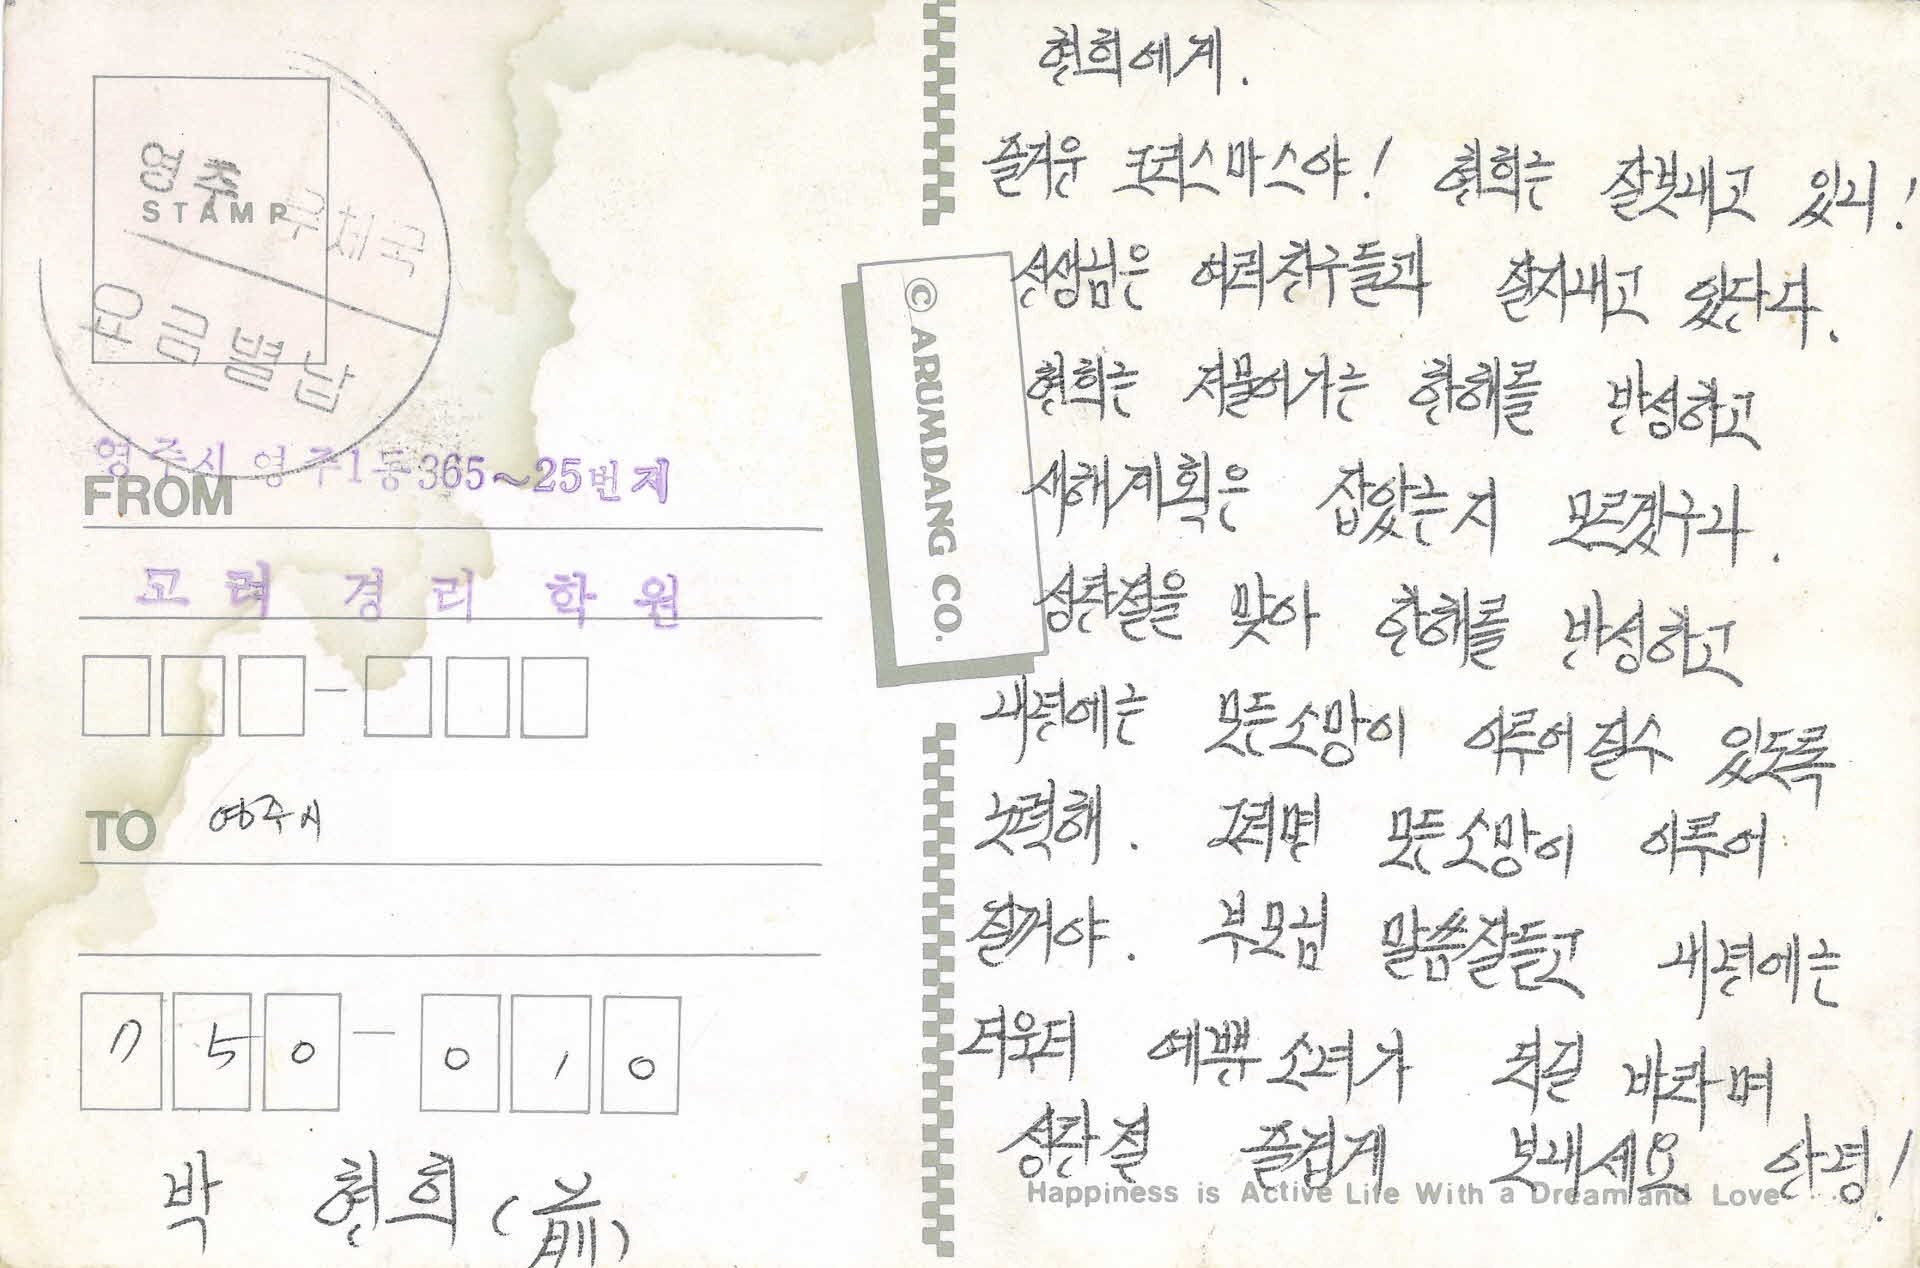 영주 우체국
STAMP
요금별납
영주시 영주1동365~25번지
FROM
고려 경리 학원
TO 영주시
750-010
박 현희 (前)
© ARUMDANG CO.
현희에게.
즐거운 크리스마스야! 현희는 잘보내고 있니!
선생님은 여러친구들과 잘지내고 있단다.
현희는 저물어가는 한해를 반성하고
새해계획은 잡았는지 모르겠구나.
성탄절을 맞아 한해를 반성하고
내년에는 모든소망이 이루어질수 있도록
노력해. 그러면 모든소망이 이루어
질거야. 부모님 말씀잘듣고 내년에는
더욱더 예쁜소녀가 되길 바라며
성탄절 즐겁게 보내세요 안녕!
Happiness is Active Life With a Dream and Love